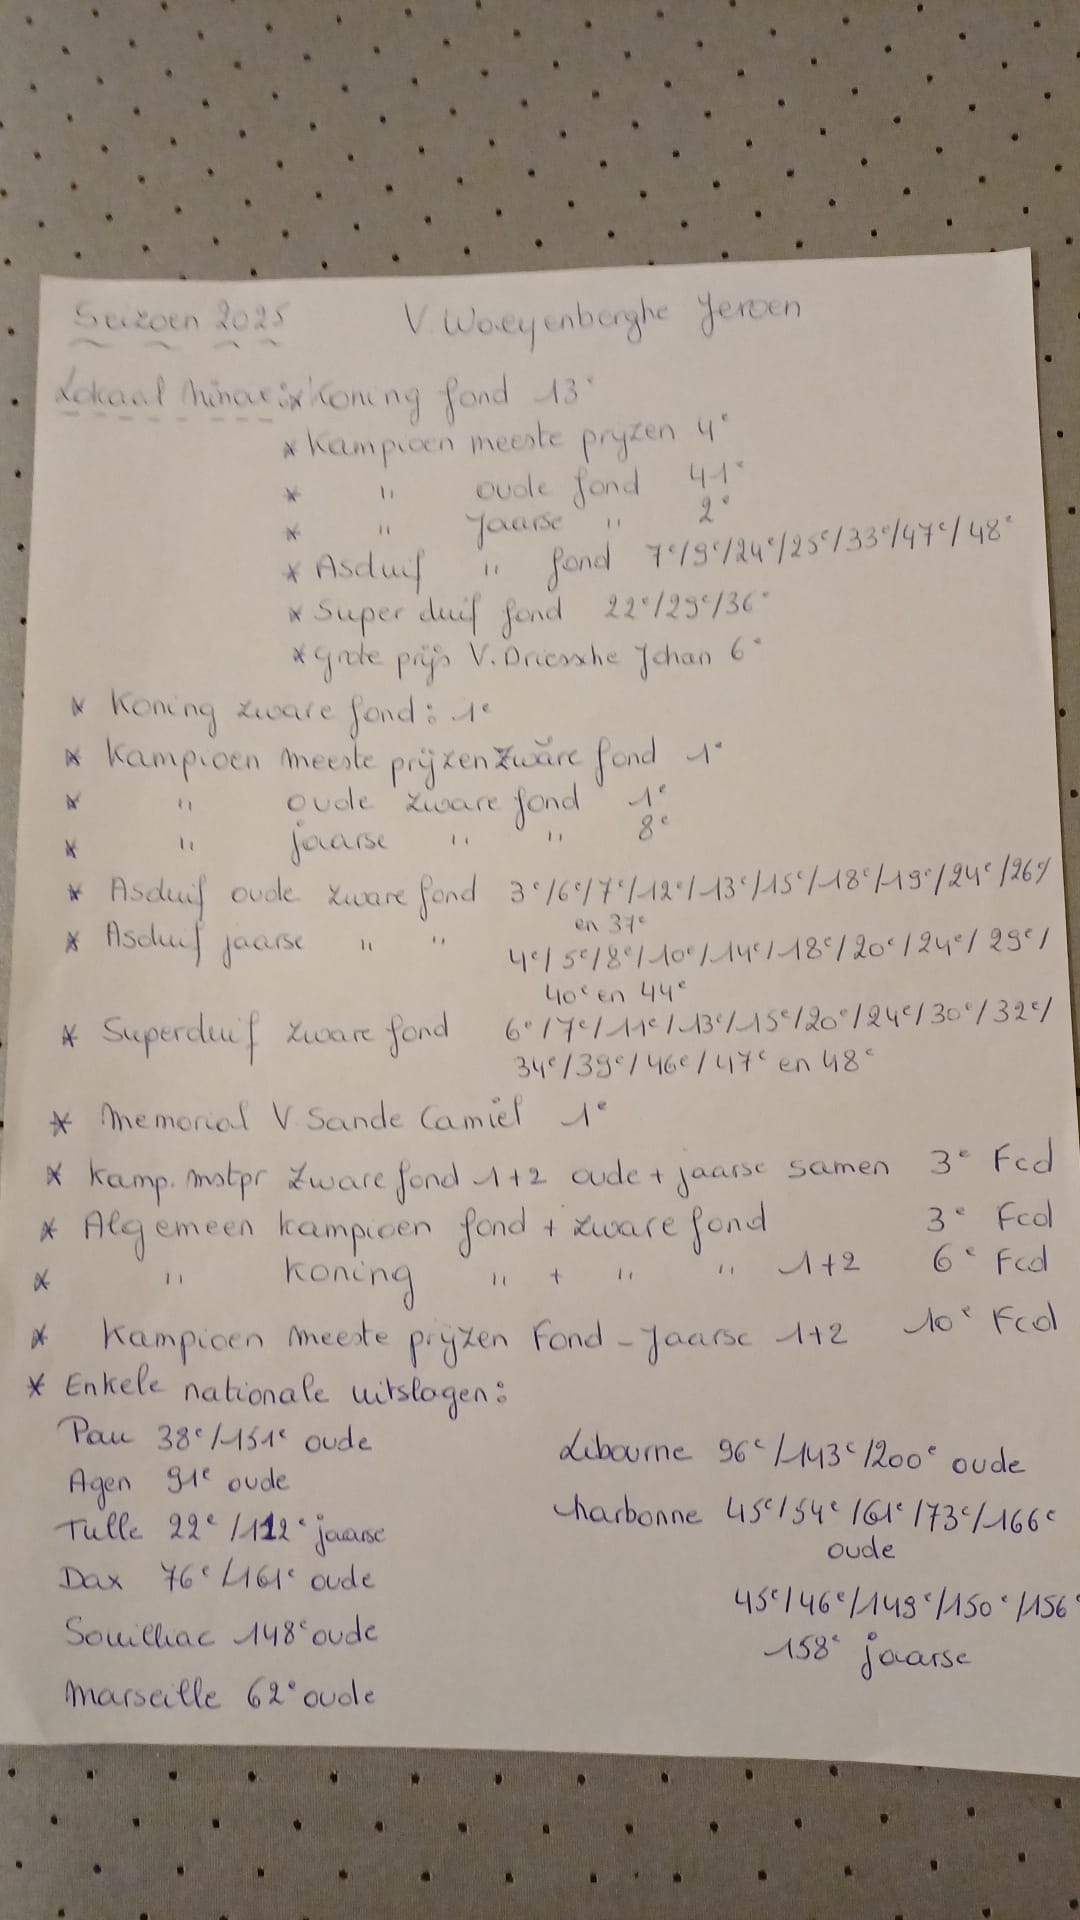 Seizoen 2025 V. Waeyenberghe Jeroen
Lokaal Ninove: * Koning fond 13e
* Kampioen meeste prijzen 4e
* " oude fond 41e
* " Jaarse " 2e
* Asduif " fond 7e/9e/24e/25e/33e/47e/48e
* Super duif fond 22e/29e/36e
* Grote prijs V. Driessche Johan 6e
* Koning zware fond: 1e
* Kampioen meeste prijzen zware fond 1e
* " oude zware fond 1e
* " jaarse " " 8e
* Asduif oude zware fond 3e/6e/7e/12e/13e/15e/18e/19e/24e/26e/
en 37e
* Asduif jaarse " " 4e/5e/8e/10e/14e/18e/20e/24e/29e/
40e en 44e
* Superduif zware fond 6e/7e/11e/13e/15e/20e/24e/30e/32e/
34e/39e/46e/47e en 48e
* Memorial V. Sande Camiel 1e
* Kamp. mstpr zware fond 1+2 oude + jaarse samen 3e Fcd
* Algemeen kampioen fond + zware fond 3e Fcd
* " Koning " + " " 1+2 6e Fcd
* Kampioen meeste prijzen Fond - Jaarse 1+2 10e Fcd
* Enkele nationale uitslagen:
Pau 38e/151e oude
Agen 91e oude
Tulle 22e/112e jaarse
Dax 76e/161e oude
Souillac 148e oude
Marseille 62e oude
Libourne 96e/143e/200e oude
Narbonne 45e/54e/61e/73e/166e
oude
45e/46e/149e/150e/156e
158e jaarse